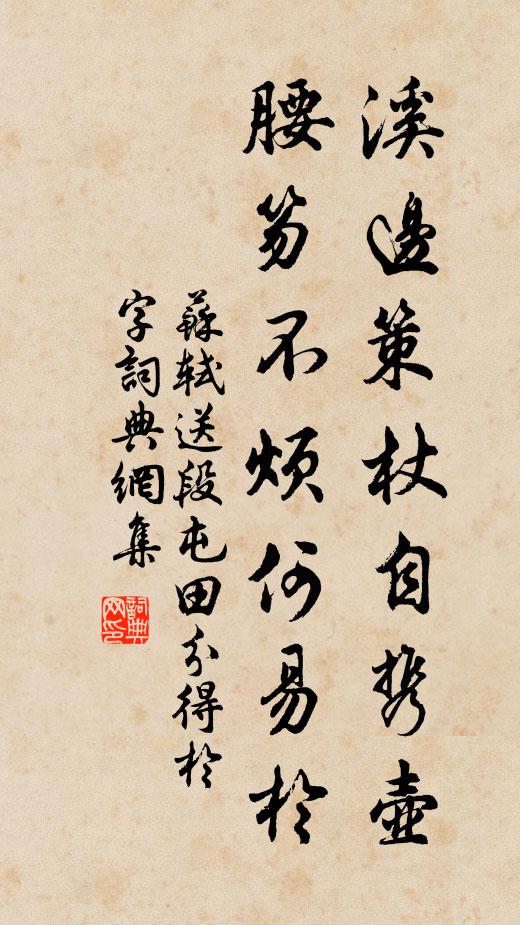 溪邊策杖自携壺
腰笏不煩何易於
蘇軾送段屯田分得於
字詞典網集
詞典网印